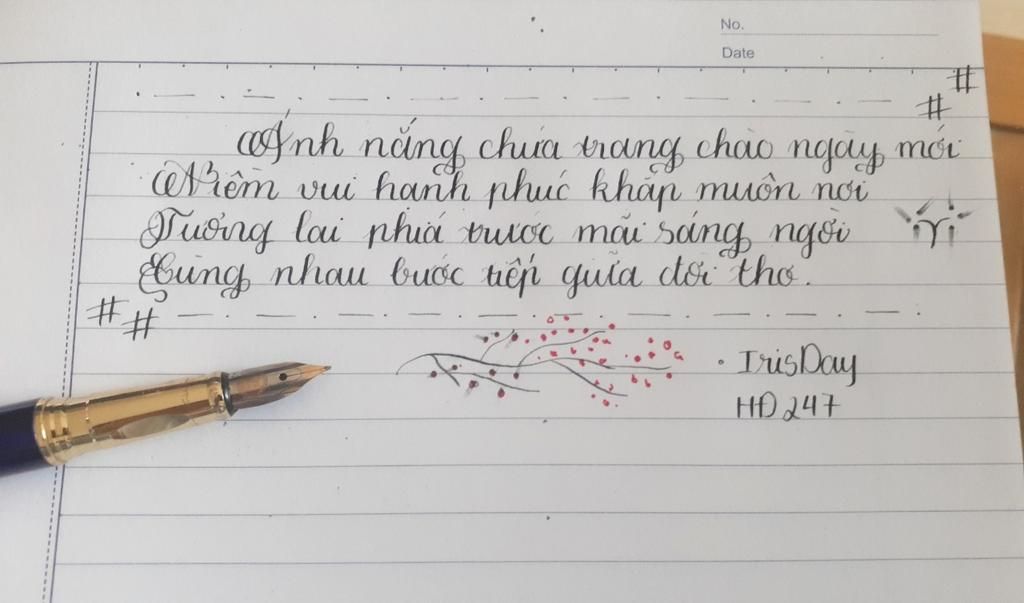 No.
Date
#
#
Ánh nắng chứa trang chào ngày mới
Niềm vui hạnh phúc khắp muôn nơi
Tương lai phía trước mãi sáng ngời
Cùng nhau bước tiếp giữa đời thơ.
#
#
IrisDay
HĐ247